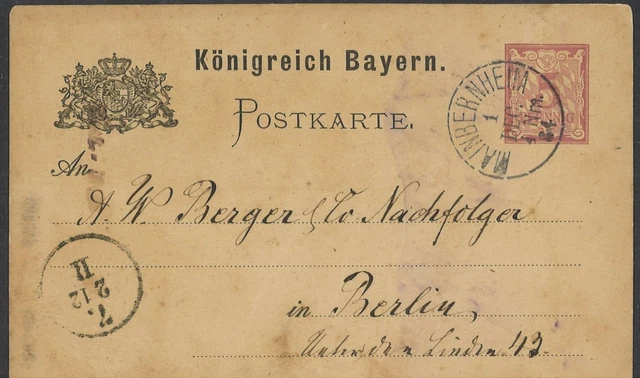 Königreich Bayern.
POSTKARTE.
MAINBERNHEIM
1
DEC.
Nm.
84
An
A. W. Berger & Co Nachfolger
in Berlin,
Unter den Linden 43.
7.
2 12
II